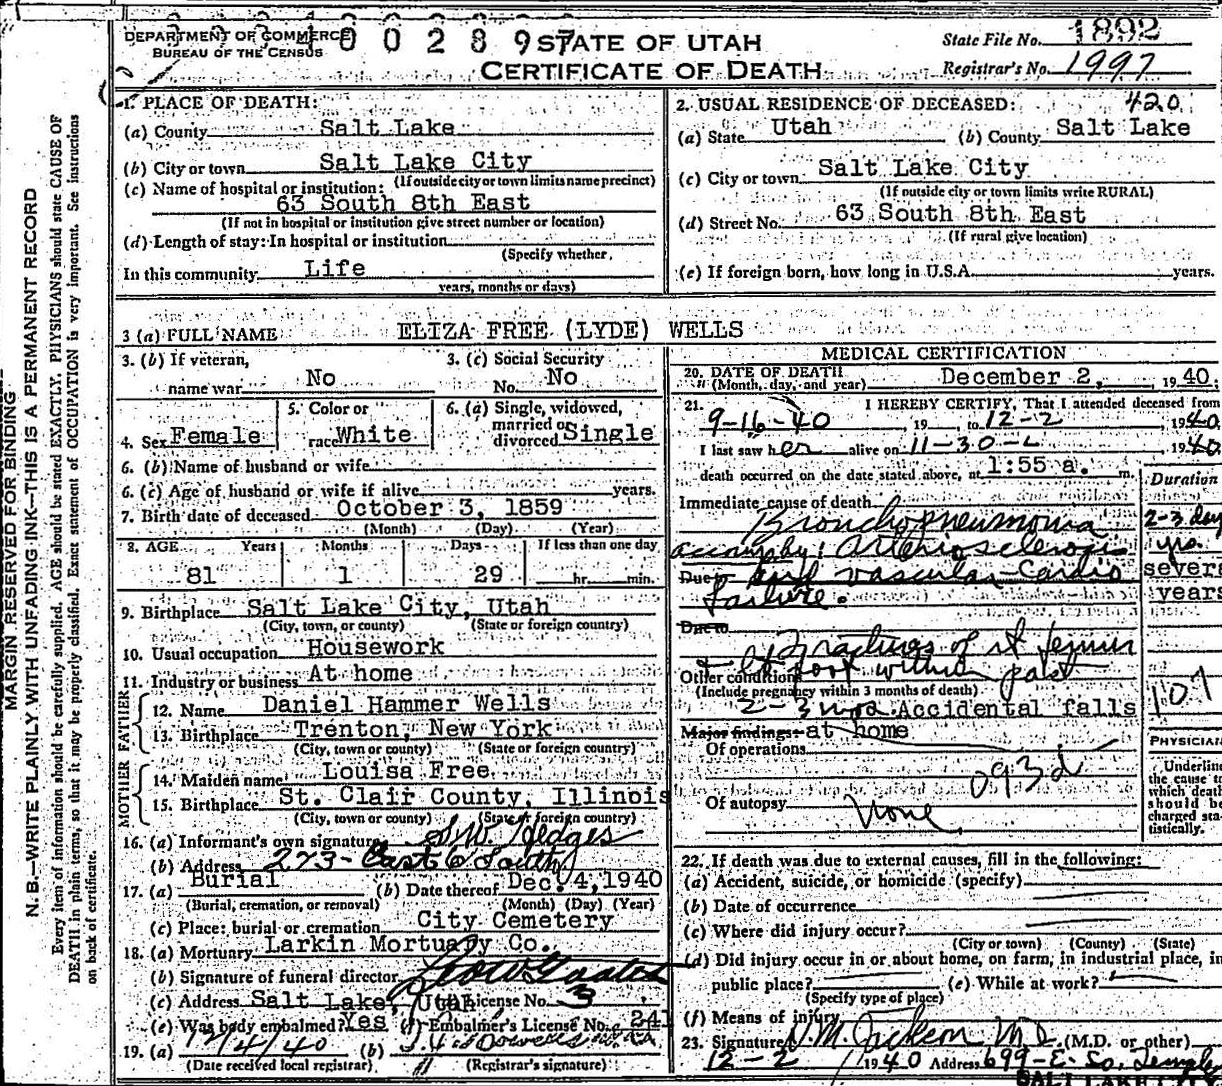 DEPARTMENT OF COMMERCE
BUREAU OF THE CENSUS
00289
STATE OF UTAH
CERTIFICATE OF DEATH
State File No. 1892
Registrar's No. 1997
MARGIN RESERVED FOR BINDING
N. B.—WRITE PLAINLY WITH UNFADING INK—THIS IS A PERMANENT RECORD
Every item of information should be carefully supplied. AGE should be stated EXACTLY. PHYSICIANS should state CAUSE OF
DEATH in plain terms, so that it may be properly classified. Exact statement of OCCUPATION is very important. See instructions
on back of certificate.
1. PLACE OF DEATH:
(a) County Salt Lake
(b) City or town Salt Lake City
(If outside city or town limits name precinct)
(c) Name of hospital or institution:
63 South 8th East
(If not in hospital or institution give street number or location)
(d) Length of stay: In hospital or institution
(Specify whether,
In this community Life
years, months or days)
2. USUAL RESIDENCE OF DECEASED: 420
(a) State Utah (b) County Salt Lake
(c) City or town Salt Lake City
(If outside city or town limits write RURAL)
(d) Street No. 63 South 8th East
(If rural give location)
(e) If foreign born, how long in U.S.A. years.
3 (a) FULL NAME ELIZA FREE (LYDE) WELLS
3. (b) If veteran,
name war No
3. (c) Social Security
No. No
4. Sex Female
5. Color or
race White
6. (a) Single, widowed,
married or
divorced Single
6. (b) Name of husband or wife
6. (c) Age of husband or wife if alive years.
7. Birth date of deceased October 3, 1859
(Month) (Day) (Year)
8. AGE Years Months Days If less than one day
81 1 29 hr. min.
9. Birthplace Salt Lake City, Utah
(City, town, or county) (State or foreign country)
10. Usual occupation Housework
11. Industry or business At home
FATHER
12. Name Daniel Hammer Wells
13. Birthplace Trenton, New York
(City, town or county) (State or foreign country)
MOTHER
14. Maiden name Louisa Free
15. Birthplace St. Clair County, Illinois
(City, town or county) (State or foreign country)
16. (a) Informant's own signature S.W. Hedges
(b) Address 273- East 6 South
17. (a) Burial (b) Date thereof Dec. 4, 1940
(Burial, cremation, or removal) (Month) (Day) (Year)
(c) Place: burial or cremation City Cemetery
18. (a) Mortuary Larkin Mortuary Co.
(b) Signature of funeral director
(c) Address Salt Lake, Utah License No. 3
(e) Was body embalmed? Yes (f) Embalmer's License No. 241
19. (a) 12/4/40 (b)
(Date received local registrar) (Registrar's signature)
MEDICAL CERTIFICATION
20. DATE OF DEATH
(Month, day, and year) December 2, 1940
21. I HEREBY CERTIFY, That I attended deceased from
9-16-40 19 to 12-2 1940
I last saw her alive on 11-30- 1940
death occurred on the date stated above, at 1:55 a. m.
Duration
Immediate cause of death
Bronchopneumonia 2-3 days
accompby: Arteriosclerosis yrs.
Due to and vascular-cardio several
failure. years
Due to
Fractures of rt femur
& lt foot within past
Other conditions
(Include pregnancy within 3 months of death)
2-3 mos. Accidental falls
107
Major findings: at home
Of operations
093d
Of autopsy None
PHYSICIAN
Underline
the cause to
which death
should be
charged sta-
tistically.
22. If death was due to external causes, fill in the following:
(a) Accident, suicide, or homicide (specify)
(b) Date of occurrence
(c) Where did injury occur?
(City or town) (County) (State)
(d) Did injury occur in or about home, on farm, in industrial place, in
public place? (e) While at work?
(Specify type of place)
(f) Means of injury
23. Signature M. Jackson M.D. (M.D. or other)
12-2 1940 Address 699-E. So. Temple
SALT LAKE CITY